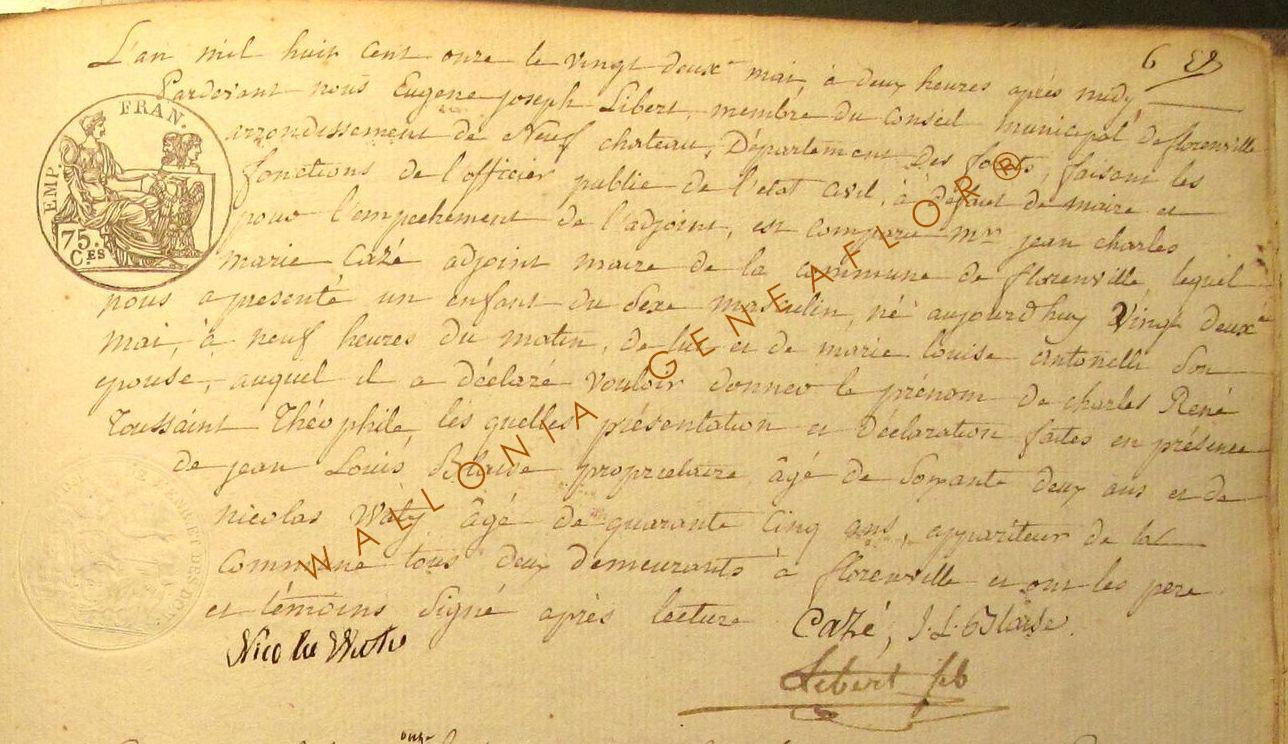 L'an mil huit cent onze le vingt deuxe mai, à deux heures après midy,
6
Pardevant nous Eugene joseph Libert, membre du Conseil municipal de florenville
arrondissement de Neuf chateau, Département des forets, faisant les
fonctions de l'officier publie de l'etat civil, à defaut de maire et
pour l'empechement de l'adjoint, est comparu mr jean charles
marie Cazé adjoint maire de la commune de florenville, lequel
nous a presenté un enfant du Sexe masculin, né aujourd'huy Vingt deuxe
mai, à neuf heures du matin, de lui et de marie louise antonelli Son
epouse, auquel il a déclaré vouloir donner le prénom de charles René
Toussaint Théophile, les quelles présentation et Déclaration faites en présence
de jean Louis Blaise proprietaire âgé de Soixante deux ans et de
nicolas Waty âgé de quarante Cinq ans, appariteur de la
Commune tous deux demeurants à florenville et ont les pere
et témoins Signé après lecture
Cazé, J.L. Blaise.
Nicola Wati
Libert
FRAN.
EMP.
75.
C.ES
WALLONIA GENEAFLOR ®